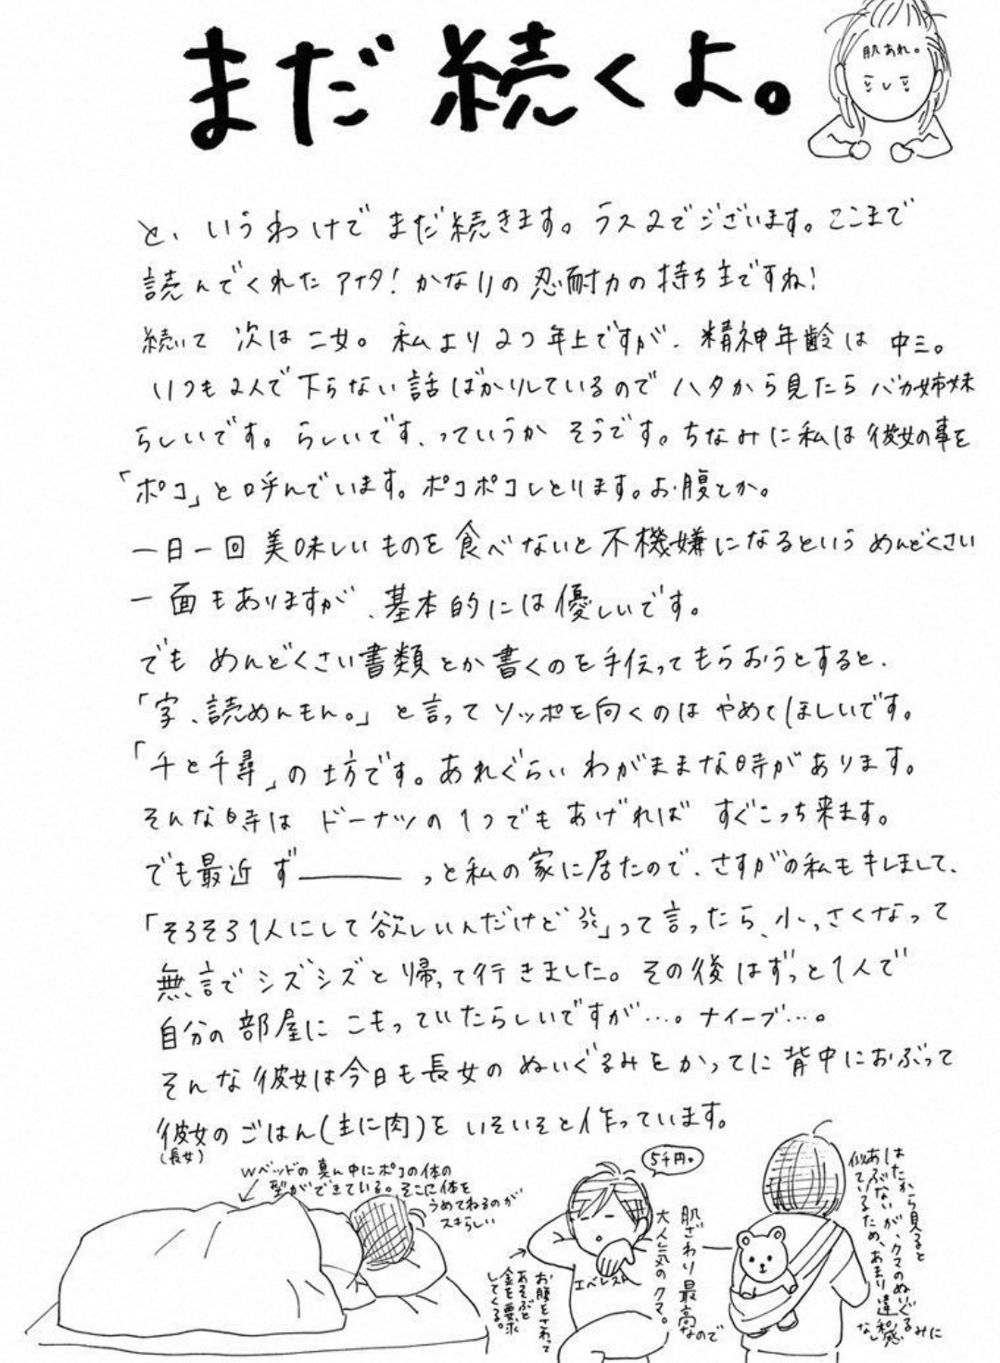 まだ続くよ。
肌あれ。
と、いうわけでまだ続きます。ラス2でございます。ここまで
読んでくれたアナタ!かなりの忍耐力の持ち主ですね!
続いて 次は二女。私より2つ年上ですが、精神年齢は中三。
いつも2人で下らない話ばかりしているのでハタから見たらバカ姉妹
らしいです。らしいです、っていうかそうです。ちなみに私は彼女の事を
「ポコ」と呼んでいます。ポコポコしとります。お腹とか。
一日一回美味しいものを食べないと不機嫌になるというめんどくさい
一面もありますが、基本的には優しいです。
でもめんどくさい書類とか書くのを手伝ってもらおうとすると、
「字、読めんもん。」と言ってソッポを向くのはやめてほしいです。
「千と千尋」の坊です。あれぐらいわがままな時があります。
そんな時はドーナツの1つでもあげればすぐこっち来ます。
でも最近ず―――っと私の家に居たので、さすがの私もキレまして、
「そろそろ1人にして欲しいんだけど」って言ったら、小っさくなって
無言でシズシズと帰って行きました。その後はずっと1人で
自分の部屋にこもっていたらしいですが…。ナイーブ…。
そんな彼女は今日も長女のぬいぐるみをかってに背中におぶって
彼女のごはん(主に肉)をいそいそと作っています。
(長女)
Wベッドの真ん中にポコの体の
型ができている。そこに体を
うめてねるのが
スキらしい
5千円。
エベレスト
お腹をさわって
あそぶと
金を要求
してくる。
肌ざわり最高なので
大人気のクマ。
はたから見ると
あぶないが、クマのぬいぐるみに
似ているため、あまり違和感
なし